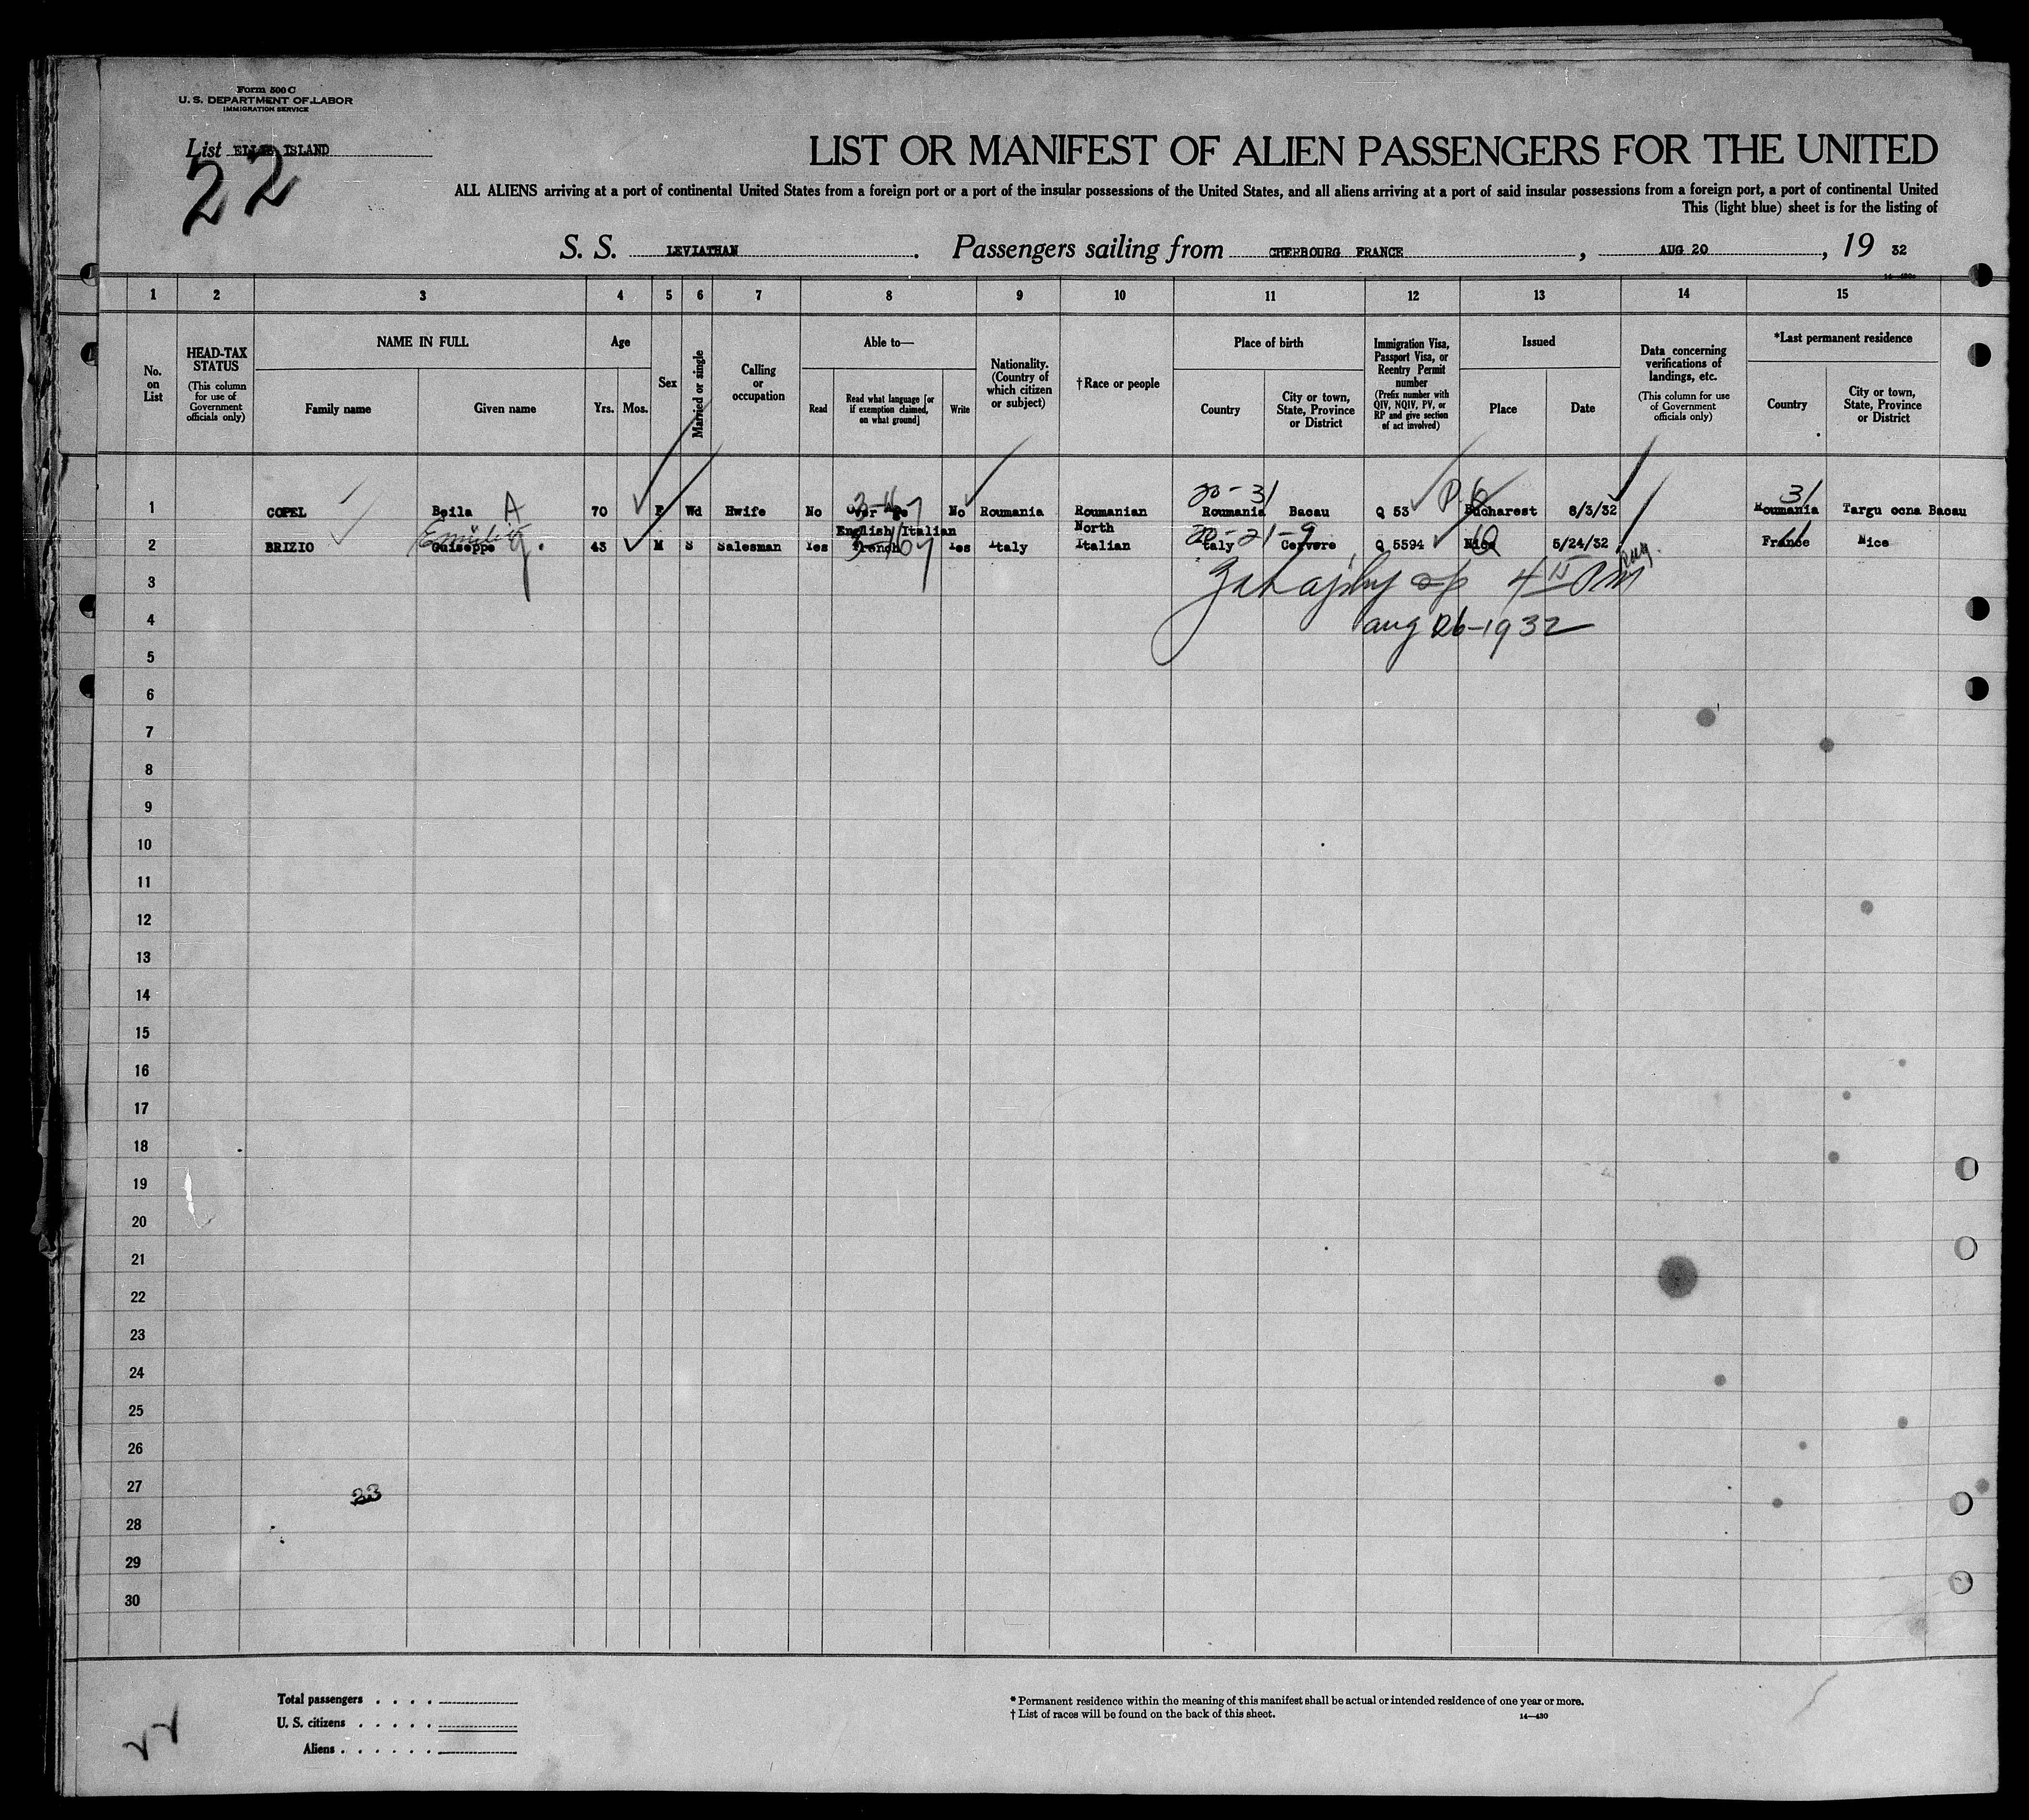 Form 500 C
U. S. DEPARTMENT OF LABOR
IMMIGRATION SERVICE
List ELLIS ISLAND
22
LIST OR MANIFEST OF ALIEN PASSENGERS FOR THE UNITED
ALL ALIENS arriving at a port of continental United States from a foreign port or a port of the insular possessions of the United States, and all aliens arriving at a port of said insular possessions from a foreign port, a port of continental United
This (light blue) sheet is for the listing of
S. S. LEVIATHAN. Passengers sailing from CHERBOURG FRANCE, AUG 20, 19 32
1 2 3 4 5 6 7 8 9 10 11 12 13 14 15
No. on List
HEAD-TAX STATUS (This column for use of Government officials only)
NAME IN FULL
Family name
Given name
Age
Yrs. Mos.
Sex
Married or single
Calling or occupation
Able to—
Read
Read what language [or if exemption claimed, on what ground]
Write
Nationality. (Country of which citizen or subject)
†Race or people
Place of birth
Country
City or town, State, Province or District
Immigration Visa, Passport Visa, or Reentry Permit number (Prefix number with QIV, NQIV, PV, or RP and give section of act involved)
Issued
Place
Date
Data concerning verifications of landings, etc. (This column for use of Government officials only)
*Last permanent residence
Country
City or town, State, Province or District
20-31 31
1 COPEL Beila A 70 F Wd Hwife No No Roumania Roumanian Roumania Bacau Q 53 Bucharest 8/3/32 Roumania Targu ocna Bacau
English Italian North
20-21-9
2 BRIZIO Guiseppe 43 M S Salesman Yes French Yes Italy Italian Italy Cervere Q 5594 Nice 5/24/32 France Nice
3
4 aug 26-1932
5
6
7
8
9
10
11
12
13
14
15
16
17
18
19
20
21
22
23
24
25
26
27
33
28
29
30
Total passengers . . . .
U. S. citizens . . . . .
Aliens . . . . . .
* Permanent residence within the meaning of this manifest shall be actual or intended residence of one year or more.
† List of races will be found on the back of this sheet.
14—430